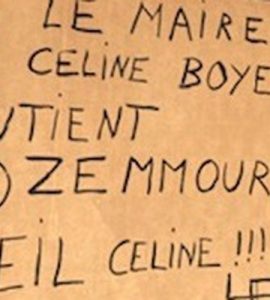 LE MAIRE
CELINE BOYE
UTIENT
ZEMMOUR
EIL CELINE !!!
LE